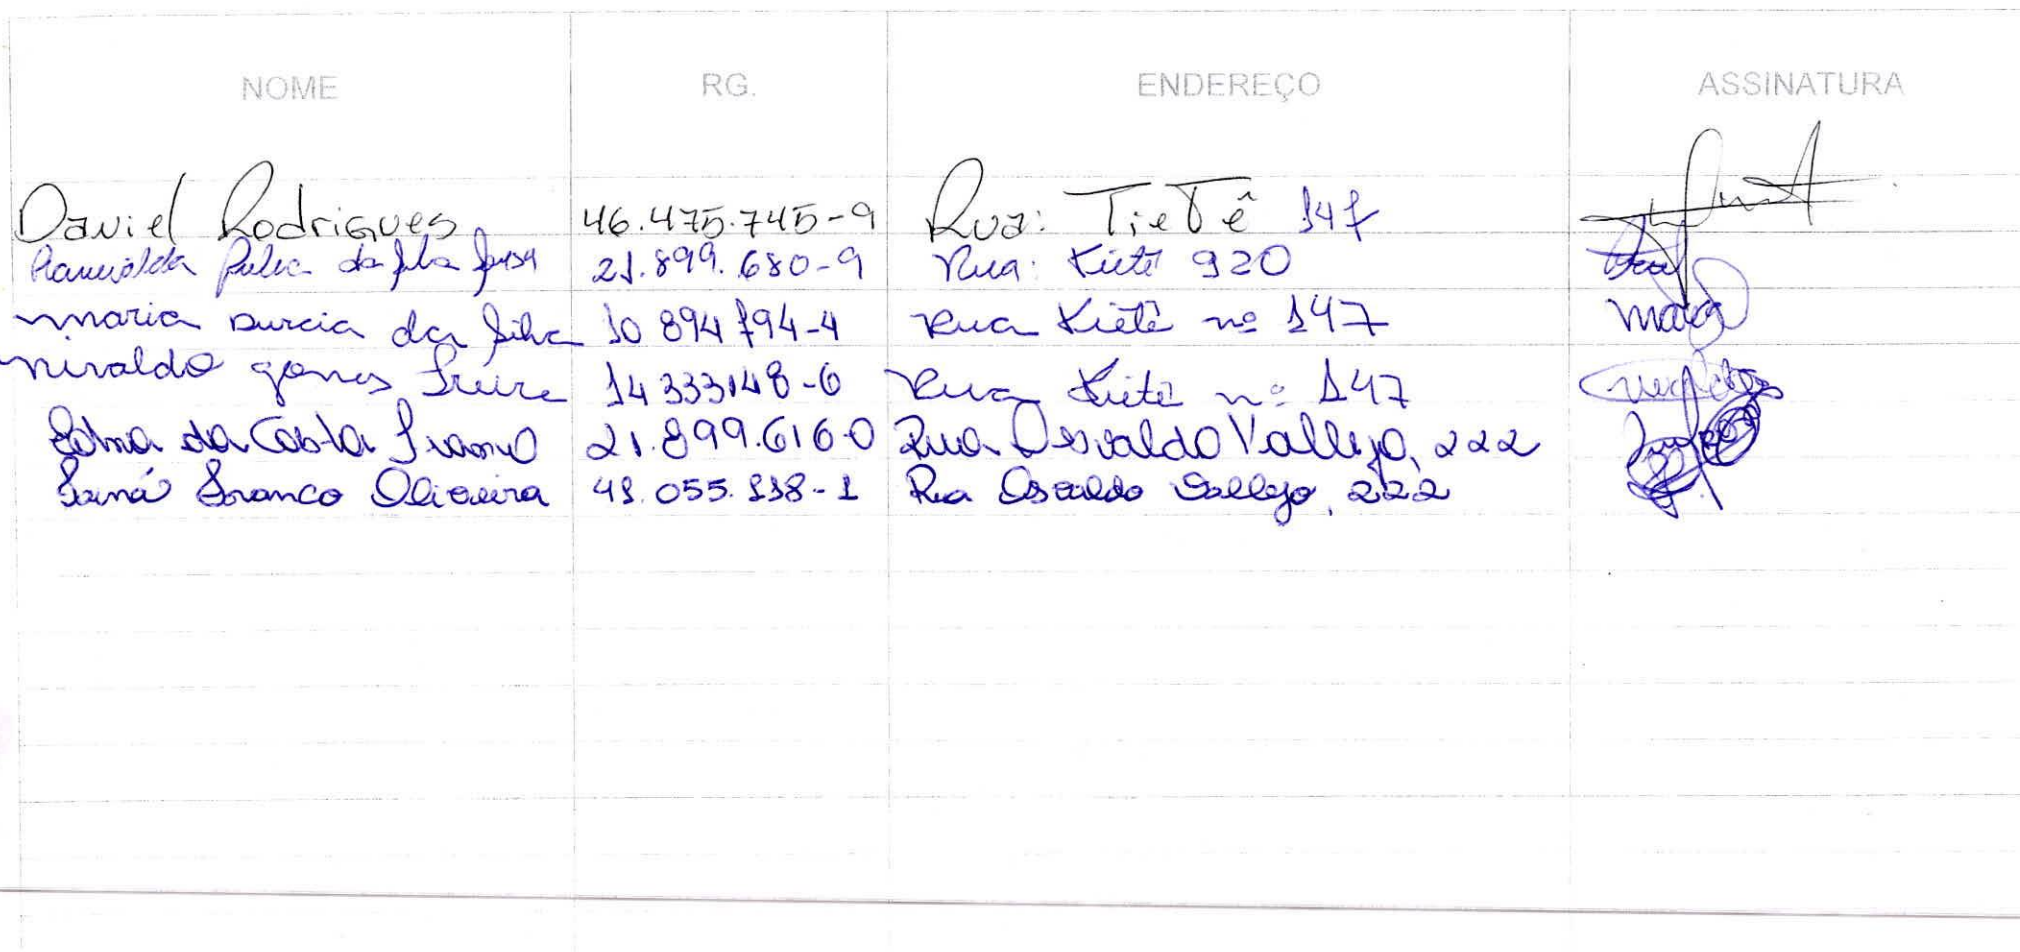 NOME RG. ENDEREÇO ASSINATURA
Daniel Rodrigues 46.475.745-9 Rua: Tietê 147
da Silva 21.899.680-9 Rua: Tietê 920
Maria Lurcia da Silva 10 894 794-4 Rua Tietê nº 147
Nivaldo gomes Freire 14 333148-6 Rua Tietê nº 147
da Costa Franco 21.899.616-0 Rua Osvaldo Vallejo, 222
Franco Oliveira 41.055.118-1 Rua Osvaldo Vallejo, 222